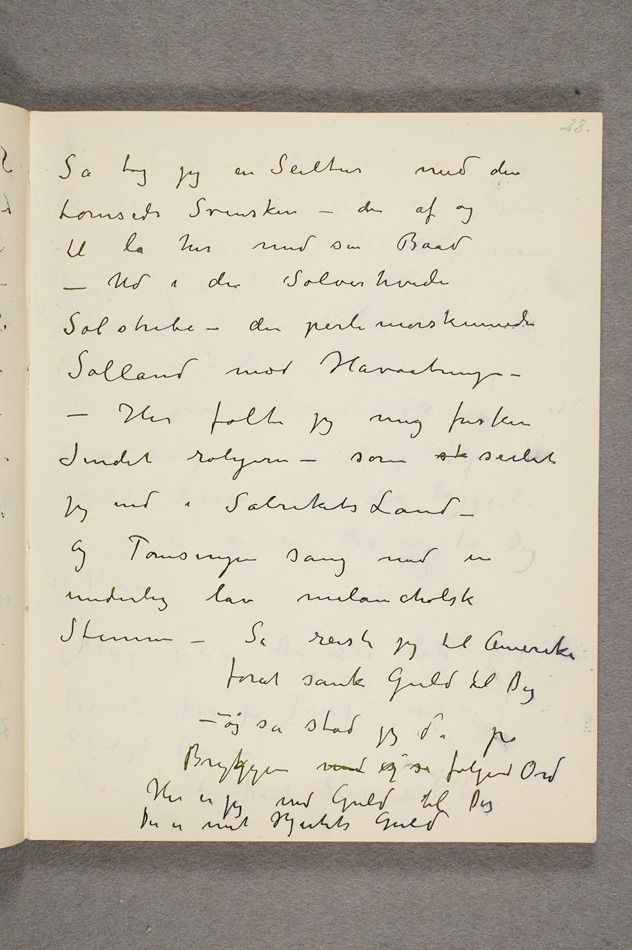 28.
Så tog jeg en Seiltur med den
tomsede Svensken – der af og
til la her med sin Baad
– Ud i den Solverhvide
Solstribe – den perlemorskinnede
Solland mod Havaabningen –
– Her følte jeg mig frisken
Sindet roligere – som sk seilet
jeg ind i SolriketsLand –
Og Tomsingen sang med en
underlig lav melancholsk
Stemme – Så reiste jeg til Amerika
forat sanke Guld til Dig
– og så stod jeg da på
Bryggen med og så følgend Ord
Her er jeg med Guld til Dig
Der er mit Hjertets Guld